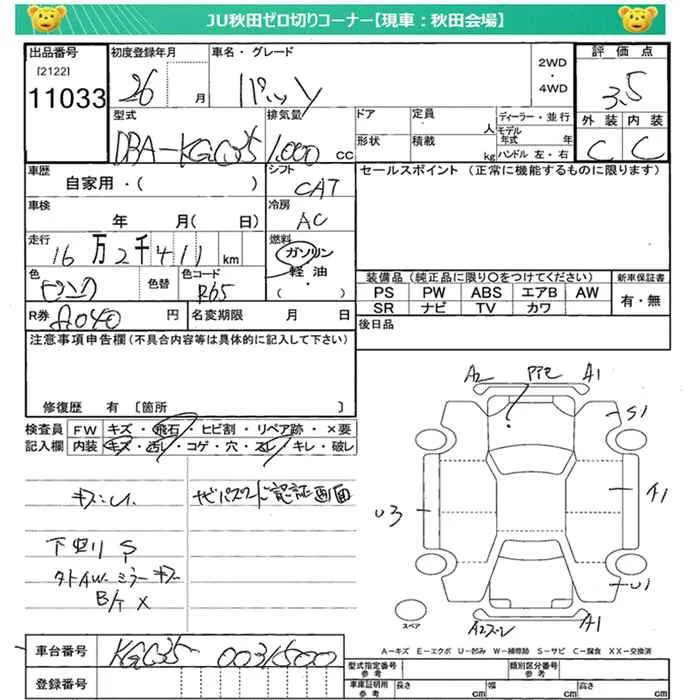 JU秋田ゼロ切りコーナー【現車：秋田会場】
出品番号 初度登録年月 車名・グレード 2WD ・ 4WD 評価点
[2122]
11033 26 月 パッソ 3.5
型式 排気量 ドア 定員 人 ディーラー・並行 外装 内装
DBA-KGC35 1,000 cc 形状 積載 kg モデル年式 年 ハンドル 左・右 C C
車歴 シフト セールスポイント (正常に機能するものに限ります)
自家用・( ) CAT
車検 冷房
年 月( 日) AC
走行 燃料
16万2千411 km ガソリン
軽油
( )
色 色替 色コード 装備品 (純正品に限り○をつけてください) 新車保証書
ピンク R65 PS PW ABS エアB AW 有・無
SR ナビ TV カワ
R券 8040 円 名変期限 月 日 後日品
注意事項申告欄 (不具合内容等は具体的に記入して下さい)
修復歴 有 [箇所 ]
検査員 FW キズ・飛石・ヒビ割・リペア跡・×要
記入欄 内装 キズ・汚レ・コゲ・穴・スレ・キレ・破レ
A2 A1
?
S1
ナビパスワード認証画面
U3 A1
下廻り S
タトAW ミラーキズ
B/T X U1
スペア A1
A-キズ E-エクボ U-凹み W-補修跡 S-サビ C-腐食 XX-交換済
車台番号 KGC35 0031500
登録番号
型式指定番号 参考 類別区分番号 参考
車庫証明用 参考 長さ cm 幅 cm 高さ cm